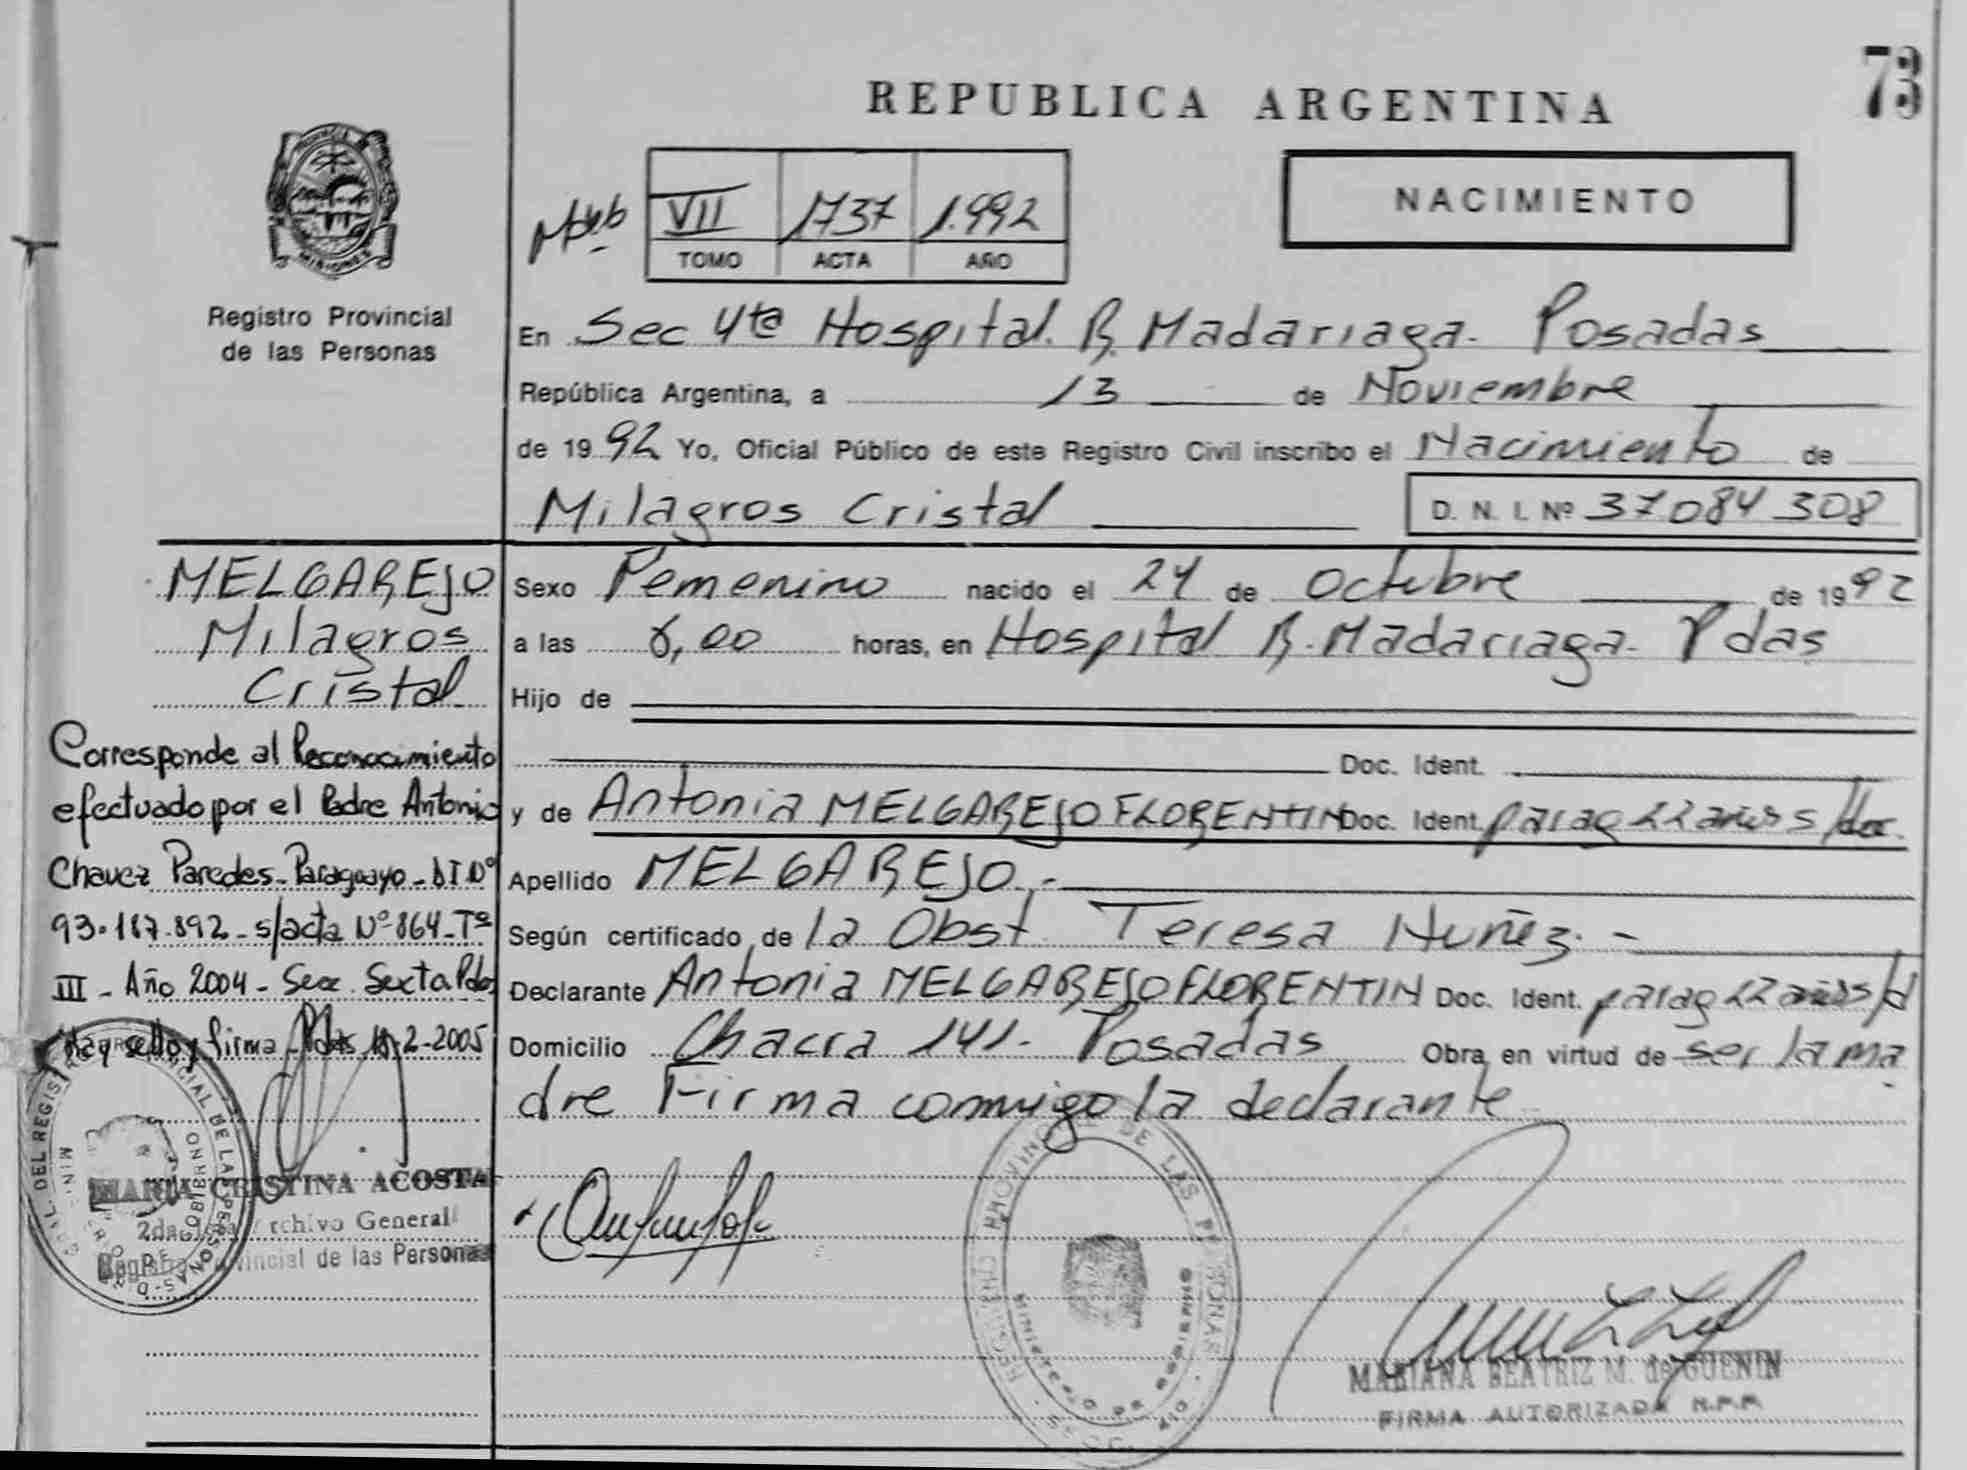 73
REPUBLICA ARGENTINA
NACIMIENTO
VII 1737 1.992
TOMO ACTA AÑO
MISIONES
Registro Provincial
de las Personas
En Sec 4ta Hospital. R. Madariaga. Posadas
República Argentina, a 13 de Noviembre
de 1992 Yo, Oficial Público de este Registro Civil inscribo el Nacimiento de
Milagros Cristal D. N. I. Nº 37084308
MELGAREJO
Milagros
Cristal
Corresponde al Reconocimiento
efectuado por el Padre Antonio
Chavez Paredes - Paraguayo - DI Nº
93.187.892 - s/acta Nº 864 - Tº
III - Año 2004 - Secc. Sexta Pdas
Hay sello y firma - Pdas -2-2005
MARIA CRISTINA ACOSTA
Archivo General
Registro Provincial de las Personas
Sexo Femenino nacido el 24 de Octubre de 1992
a las 6,00 horas, en Hospital R. Madariaga. Pdas
Hijo de
Doc. Ident.
y de Antonia MELGAREJO FLORENTIN Doc. Ident. parag 22 años s/doc.
Apellido MELGAREJO.-
Según certificado de la Obst. Teresa Nuñez. -
Declarante Antonia MELGAREJO FLORENTIN Doc. Ident. parag 22 años s/d
Domicilio Chacra 141. Posadas Obra en virtud de ser la ma
dre Firma conmigo la declarante
MARIANA BEATRIZ M. de GUENIN
FIRMA AUTORIZADA R.P.P.